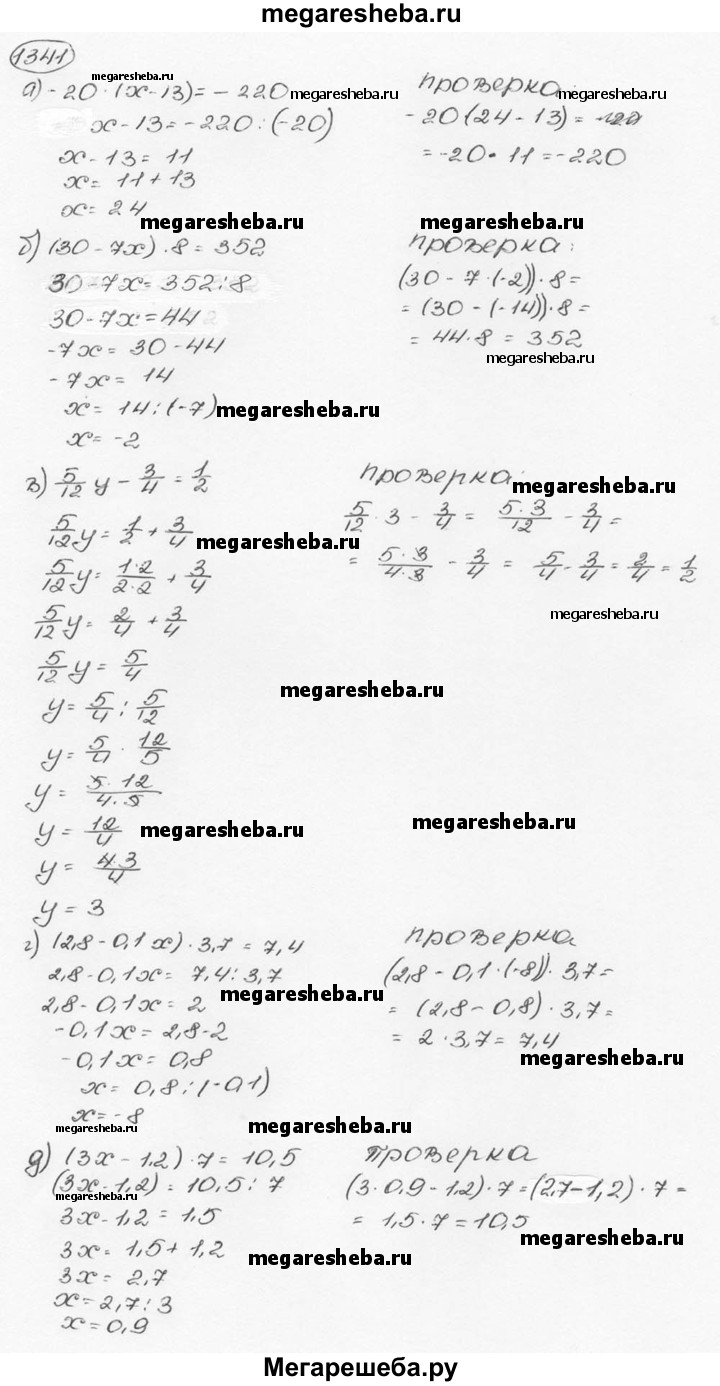 megaresheba.ru
1341
megaresheba.ru
а) -20·(x-13)=-220 megaresheba.ru
x-13=-220:(-20)
x-13=11
x=11+13
x=24
проверка: megaresheba.ru
-20(24-13)=
=-20·11=-220
megaresheba.ru megaresheba.ru
б) (30-7x)·8=352
30-7x=352:8
30-7x=44
-7x=30-44
-7x=14
x=14:(-7) megaresheba.ru
x=-2
проверка:
(30-7·(-2))·8=
=(30-(-14))·8=
=44·8=352
megaresheba.ru
в) 5/12 y - 3/4 = 1/2
5/12 y = 1/2 + 3/4 megaresheba.ru
5/12 y = 1·2/2·2 + 3/4
5/12 y = 2/4 + 3/4
5/12 y = 5/4
y = 5/4 : 5/12
y = 5/4 · 12/5
y = 5·12/4·5
y = 12/4 megaresheba.ru
y = 4·3/4
y = 3
проверка: megaresheba.ru
5/12 · 3 - 3/4 = 5·3/12 - 3/4 =
= 5·3/4·3 - 3/4 = 5/4 - 3/4 = 2/4 = 1/2
megaresheba.ru
megaresheba.ru
megaresheba.ru
г) (2,8-0,1x)·3,7=7,4
2,8-0,1x=7,4:3,7
2,8-0,1x=2 megaresheba.ru
-0,1x=2,8-2
-0,1x=0,8
x=0,8:(-0,1)
x=-8
проверка
(2,8-0,1·(-8))·3,7=
=(2,8-0,8)·3,7=
=2·3,7=7,4
megaresheba.ru
megaresheba.ru megaresheba.ru
д) (3x-1,2)·7=10,5
(3x-1,2)=10,5:7
megaresheba.ru
3x-1,2=1,5
3x=1,5+1,2
3x=2,7
x=2,7:3
x=0,9
проверка
(3·0,9-1,2)·7=(2,7-1,2)·7=
=1,5·7=10,5
megaresheba.ru
megaresheba.ru
Мегарешеба.ру